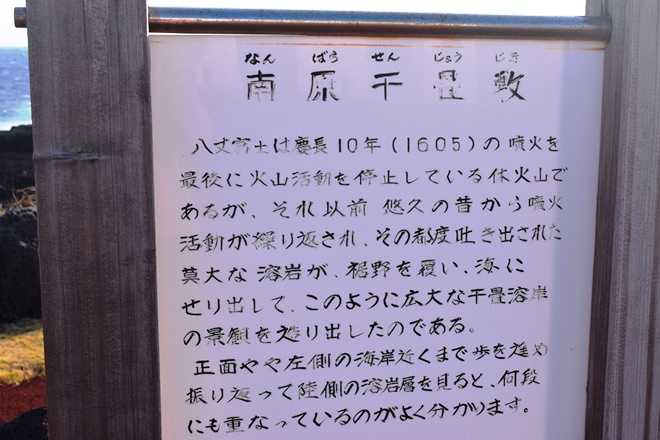 なん ばら せん じょう じき
南原千畳敷
八丈富士は慶長10年(1605)の噴火を
最後に火山活動を停止している休火山で
あるが、それ以前 悠久の昔から噴火
活動が繰り返され、その都度吐き出された
莫大な溶岩が、裾野を覆い、海に
せり出して、このように広大な千畳溶岸
の景観を造り出したのである。
正面やや左側の海岸近くまで歩を進め
振り返って陸側の溶岩層を見ると、何段
にも重なっているのがよく分がります。